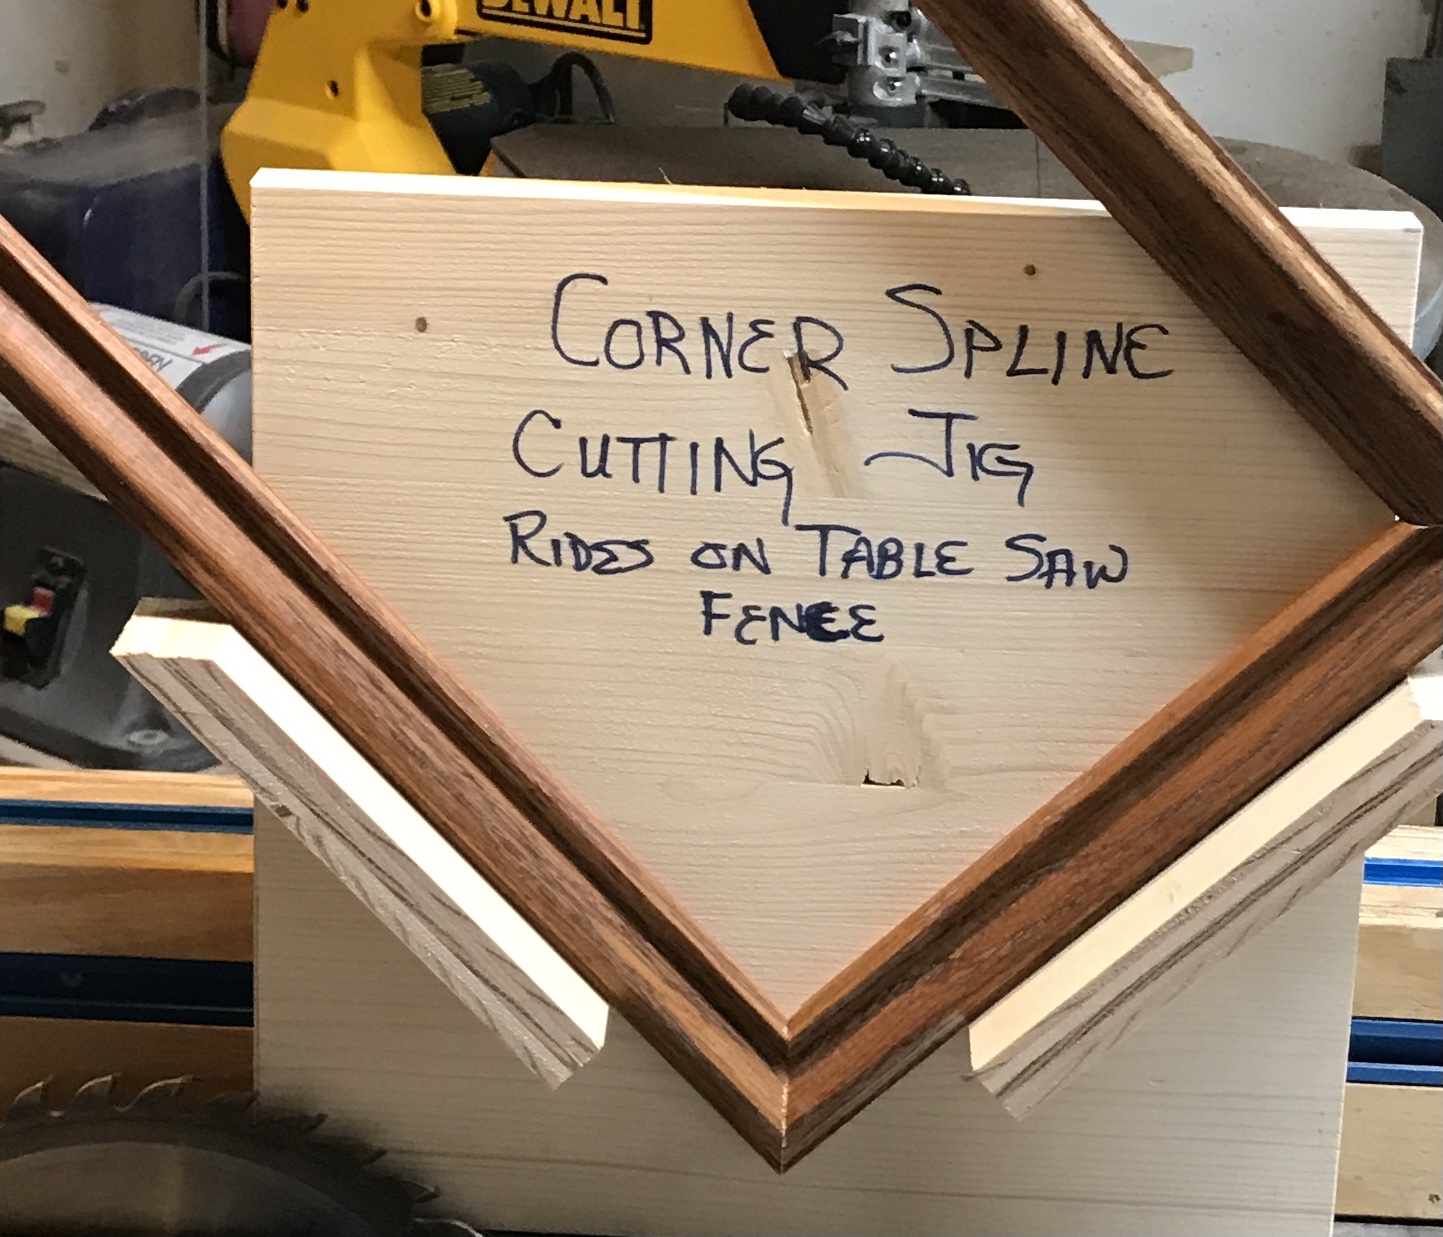 DEWALT
CORNER SPLINE
CUTTING JIG
RIDES ON TABLE SAW
FENCE